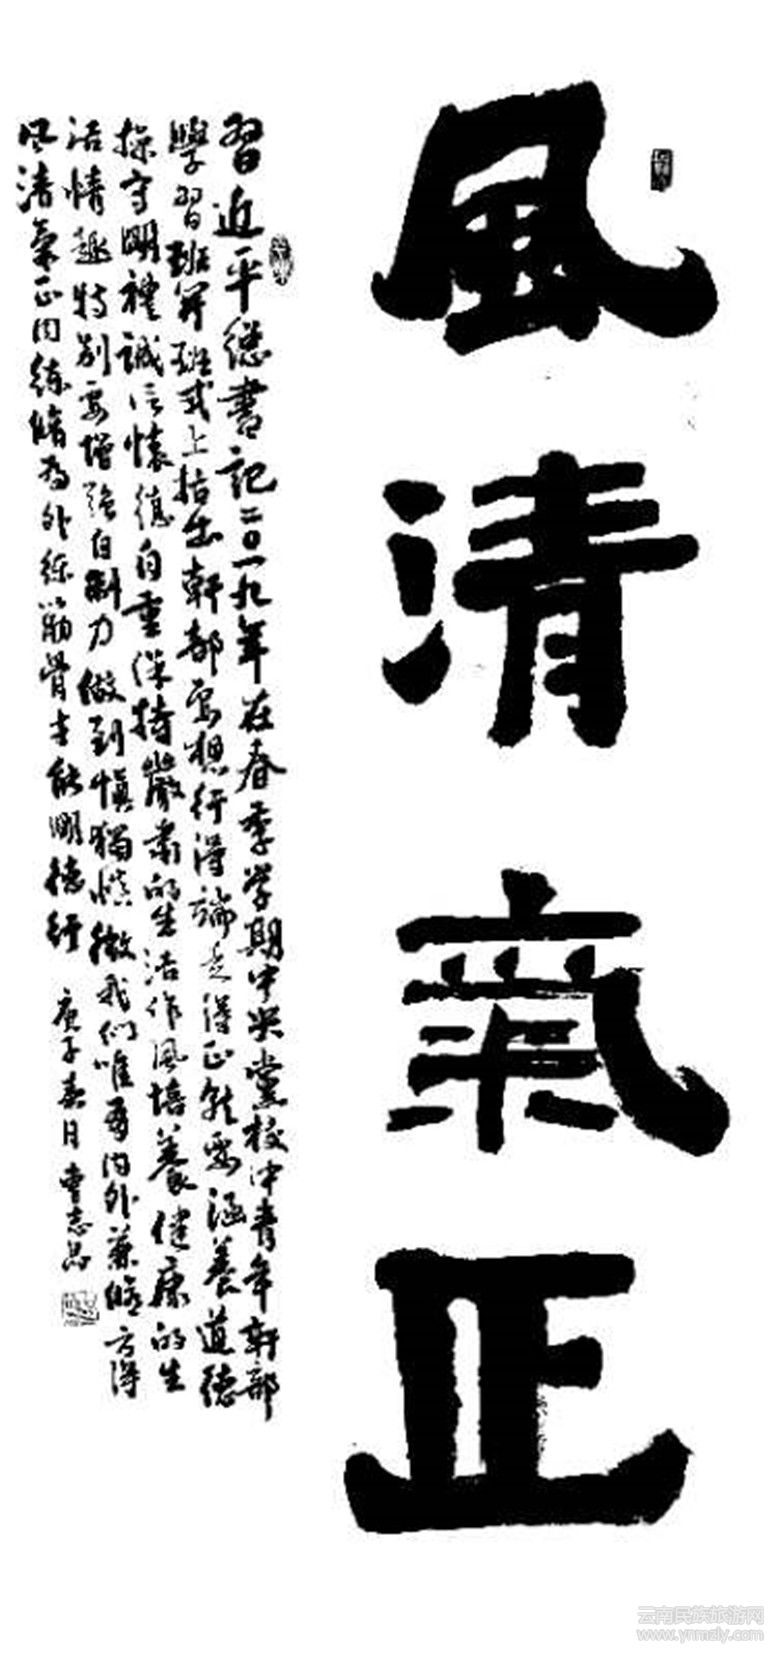 風清氣正
習近平總書記二〇一九年在春季学期中央黨校中青年幹部
學習班開班式上指出幹部要想行得端走得正就要涵養道德
操守明禮誠信懷德自重保持嚴肅的生活作風培養健康的生
活情趣特别要增強自制力做到慎獨慎微我們唯有内外兼修方得
风清氣正内練修為外練筋骨方能明德行
庚子春月曹志
云南民族旅游网
www.ynmzly.com